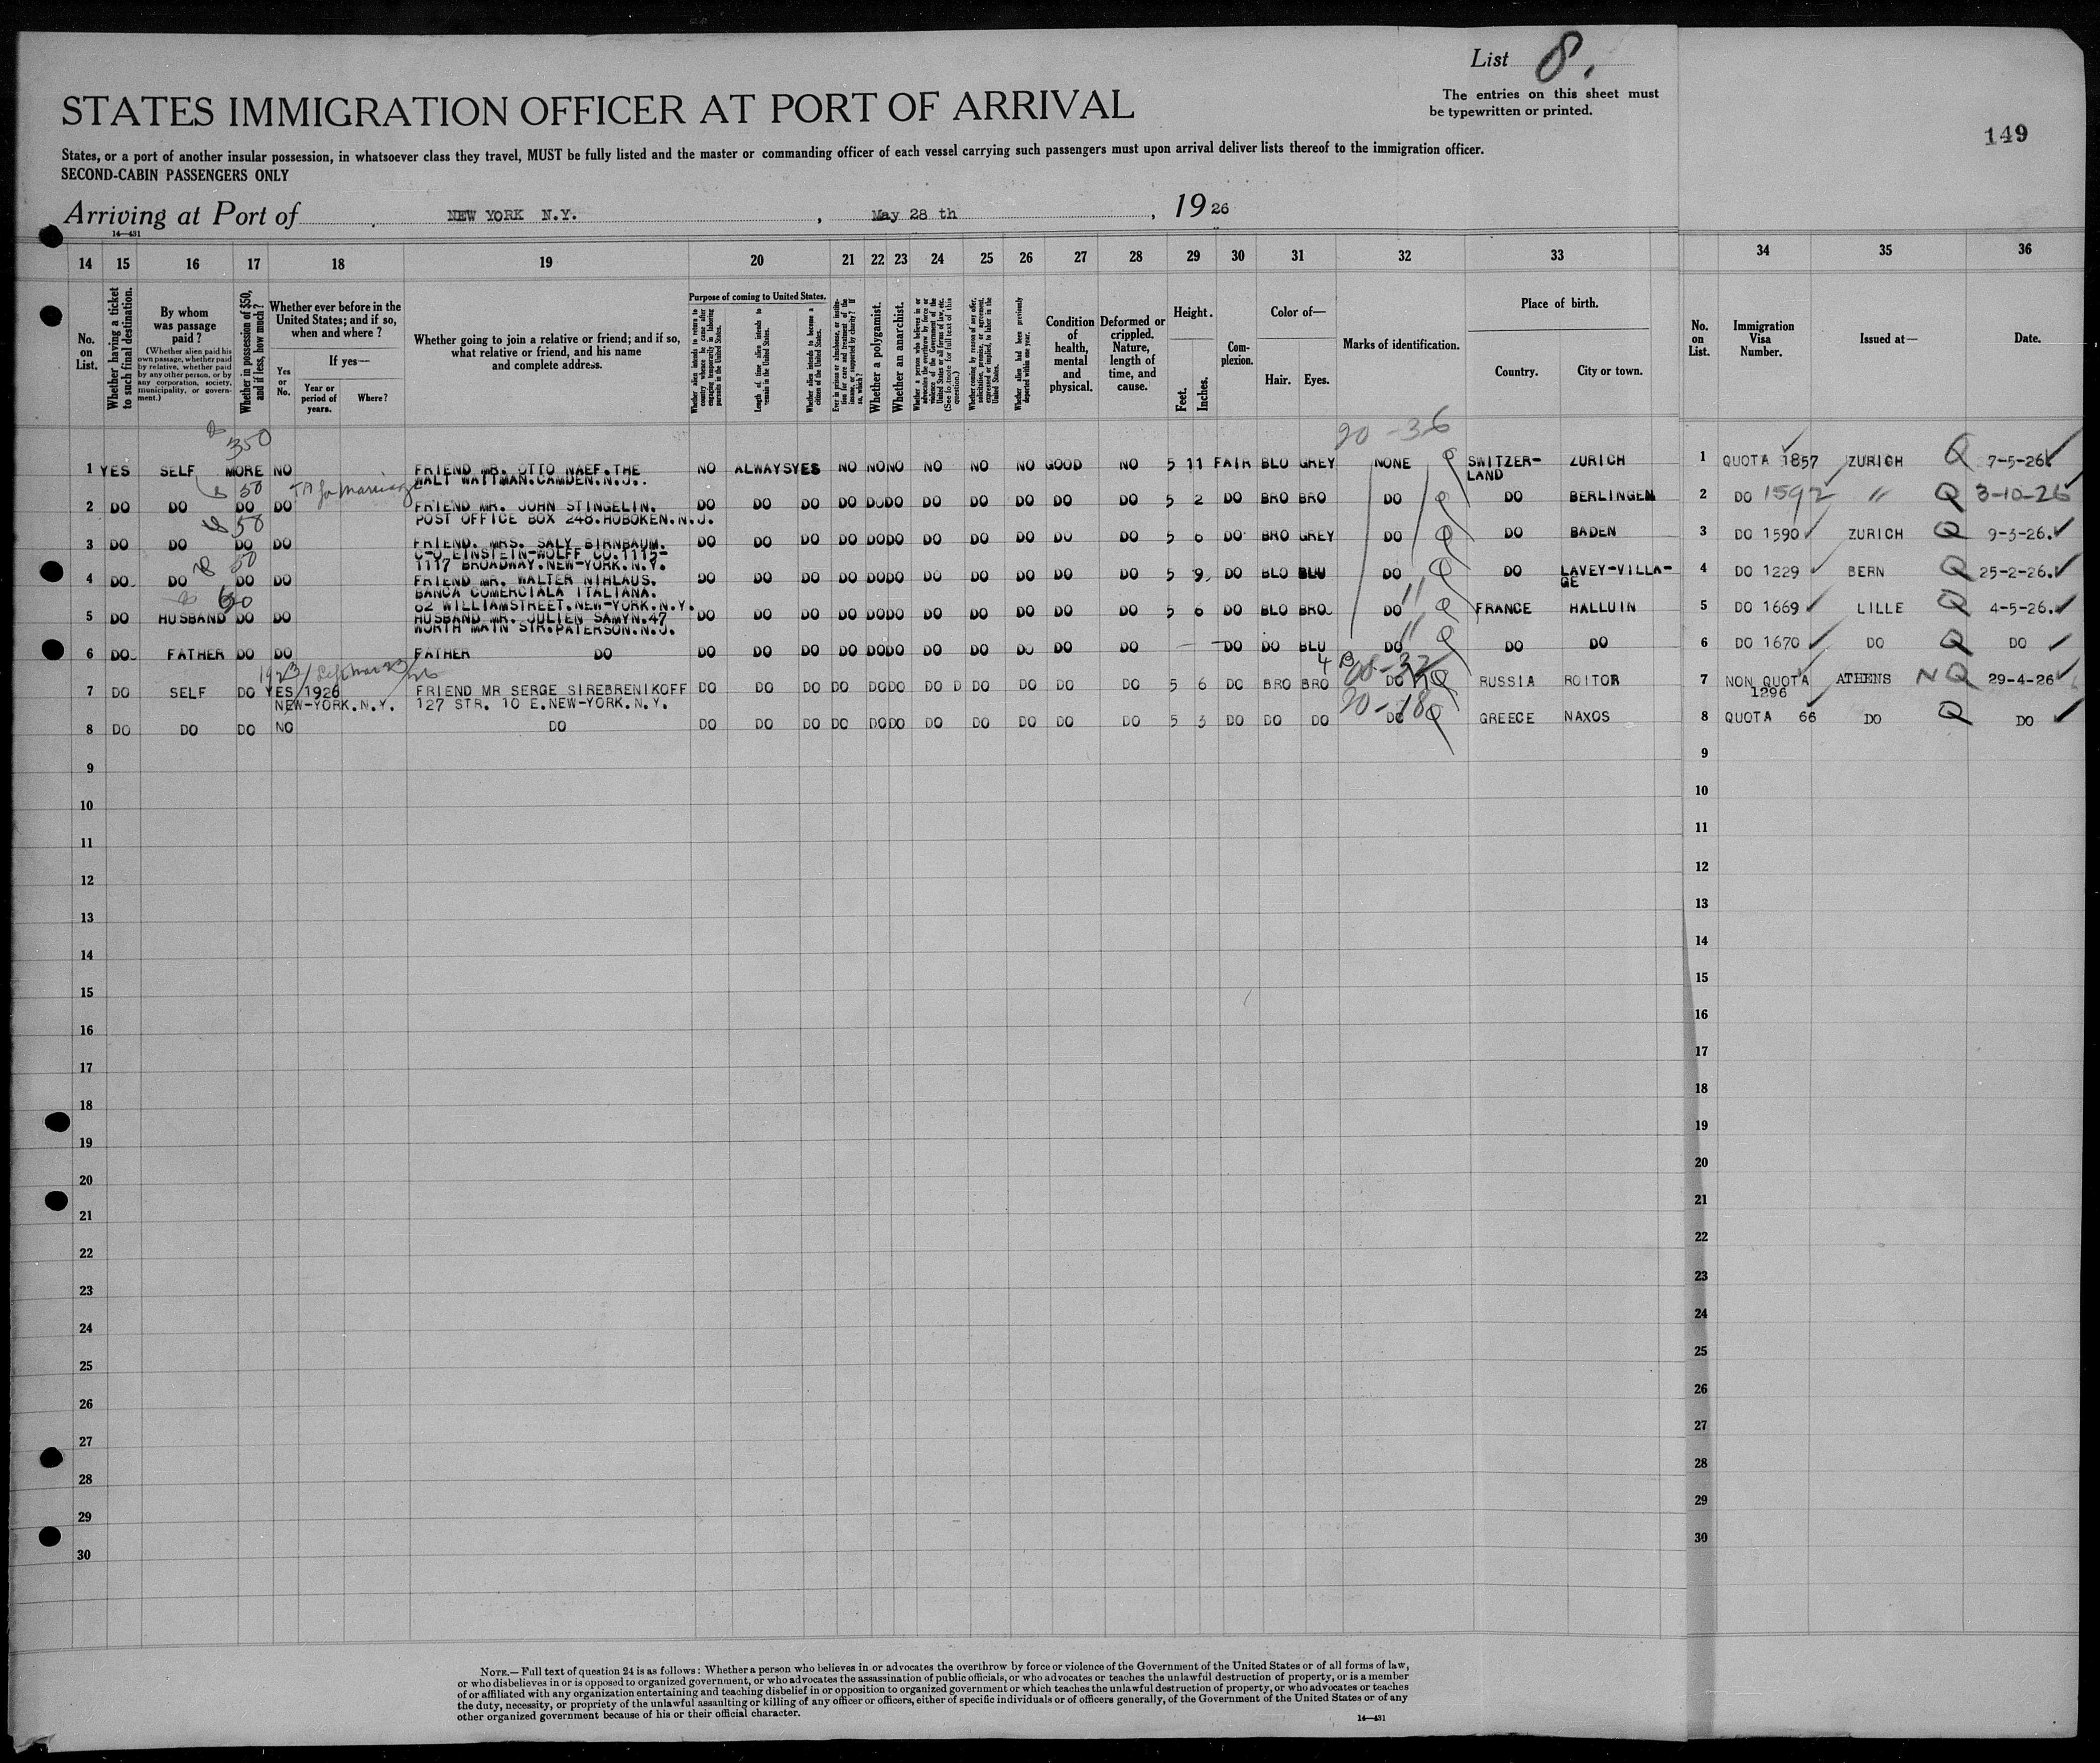 List 8.
The entries on this sheet must
be typewritten or printed.
STATES IMMIGRATION OFFICER AT PORT OF ARRIVAL
149
States, or a port of another insular possession, in whatsoever class they travel, MUST be fully listed and the master or commanding officer of each vessel carrying such passengers must upon arrival deliver lists thereof to the immigration officer.
SECOND-CABIN PASSENGERS ONLY
Arriving at Port of NEW YORK N.Y. , May 28 th , 19 26
14—431
14 15 16 17 18 19 20 21 22 23 24 25 26 27 28 29 30 31 32 33 34 35 36
No. on List.
Whether having a ticket to such final destination.
By whom was passage paid ?
(Whether alien paid his own passage, whether paid by relative, whether paid by any other person, or by any corporation, society, municipality, or government.)
Whether in possession of $50, and if less, how much ?
Whether ever before in the United States; and if so, when and where ?
Yes or No.
If yes—
Year or period of years.
Where ?
Whether going to join a relative or friend; and if so, what relative or friend, and his name and complete address.
Purpose of coming to United States.
Whether alien intends to return to country whence he came after engaging temporarily in laboring pursuits in the United States.
Length of time alien intends to remain in the United States.
Whether alien intends to become a citizen of the United States.
Ever in prison or almshouse, or institution for care and treatment of the insane, or supported by charity ? If so, which ?
Whether a polygamist.
Whether an anarchist.
Whether a person who believes in or advocates the overthrow by force or violence of the Government of the United States or all forms of law, etc. (See footnote for full text of this question.)
Whether coming by reason of any offer, solicitation, promise, or agreement, expressed or implied, to labor in the United States.
Whether alien had been previously deported within one year.
Condition of health, mental and physical.
Deformed or crippled. Nature, length of time, and cause.
Height.
Feet.
Inches.
Complexion.
Color of—
Hair.
Eyes.
Marks of identification.
Place of birth.
Country.
City or town.
No. on List.
Immigration Visa Number.
Issued at—
Date.
350
20-36
1 YES SELF MORE NO FRIEND MR. OTTO NAEF.THE NO ALWAYS YES NO NO NO NO NO NO GOOD NO 5 11 FAIR BLO GREY NONE SWITZER- ZURICH 1 QUOTA 1857 ZURICH Q 7-5-26.
WALT WATTMAN.CAMDEN.N.J.. LAND
50 TA for marriage
2 DO DO DO DO FRIEND MR. JOHN STINGELIN. DO DO DO DO DO DO DO DO DO DO DO 5 2 DO BRO BRO DO DO BERLINGEN 2 DO 1592 " Q 3-10-26
POST OFFICE BOX 248.HOBOKEN.N.J.
50
3 DO DO DO DO FRIEND. MRS. SALY BIRNBAUM. DO DO DO DO DO DO DO DO DO DO DO 5 6 DO BRO GREY DO DO BADEN 3 DO 1590 ZURICH Q 9-3-26.
C-O EINSTEIN-WOLFF CO.1115-
1117 BROADWAY.NEW-YORK.N.Y.
50
4 DO DO DO DO FRIEND MR. WALTER NIHLAUS. DO DO DO DO DO DO DO DO DO DO DO 5 9 DO BLO BLU DO DO LAVEY-VILLA- 4 DO 1229 BERN Q 25-2-26.
GE
BANCA COMERCIALA ITALIANA.
62 WILLIAMSTREET.NEW-YORK.N.Y.
5 DO HUSBAND DO DO HUSBAND MR. JULIEN SAMYN.47 DO DO DO DO DO DO DO DO DO DO DO 5 6 DO BLO BRO DO FRANCE HALLUIN 5 DO 1669 LILLE Q 4-5-26.
NORTH MAIN STR.PATERSON.N.J.
6 DO FATHER DO DO FATHER DO DO DO DO DO DO DO DO DO DO DO DO — DO DO BLU DO DO DO 6 DO 1670 DO Q DO
1923 / Left Mar 23/26
20-32
7 DO SELF DO YES 1926 FRIEND MR SERGE SIREBRENIKOFF DO DO DO DO DO DO DO D DO DO DO DO 5 6 DO BRO BRO DO RUSSIA ROITOR 7 NON QUOTA ATHENS NQ 29-4-26
NEW-YORK.N.Y. 127 STR. 10 E.NEW-YORK.N.Y. 1296
20-18
8 DO DO DO NO DO DO DO DO DO DO DO DO DO DO DO DO 5 3 DO DO DO DO GREECE NAXOS 8 QUOTA 66 DO Q DO
9 9
10 10
11 11
12 12
13 13
14 14
15 15
16 16
17 17
18 18
19 19
20 20
21 21
22 22
23 23
24 24
25 25
26 26
27 27
28 28
29 29
30 30
NOTE.—Full text of question 24 is as follows: Whether a person who believes in or advocates the overthrow by force or violence of the Government of the United States or of all forms of law,
or who disbelieves in or is opposed to organized government, or who advocates the assassination of public officials, or who advocates or teaches the unlawful destruction of property, or is a member
of or affiliated with any organization entertaining and teaching disbelief in or opposition to organized government or which teaches the unlawful destruction of property, or who advocates or teaches
the duty, necessity, or propriety of the unlawful assaulting or killing of any officer or officers, either of specific individuals or of officers generally, of the Government of the United States or of any
other organized government because of his or their official character.
14—431